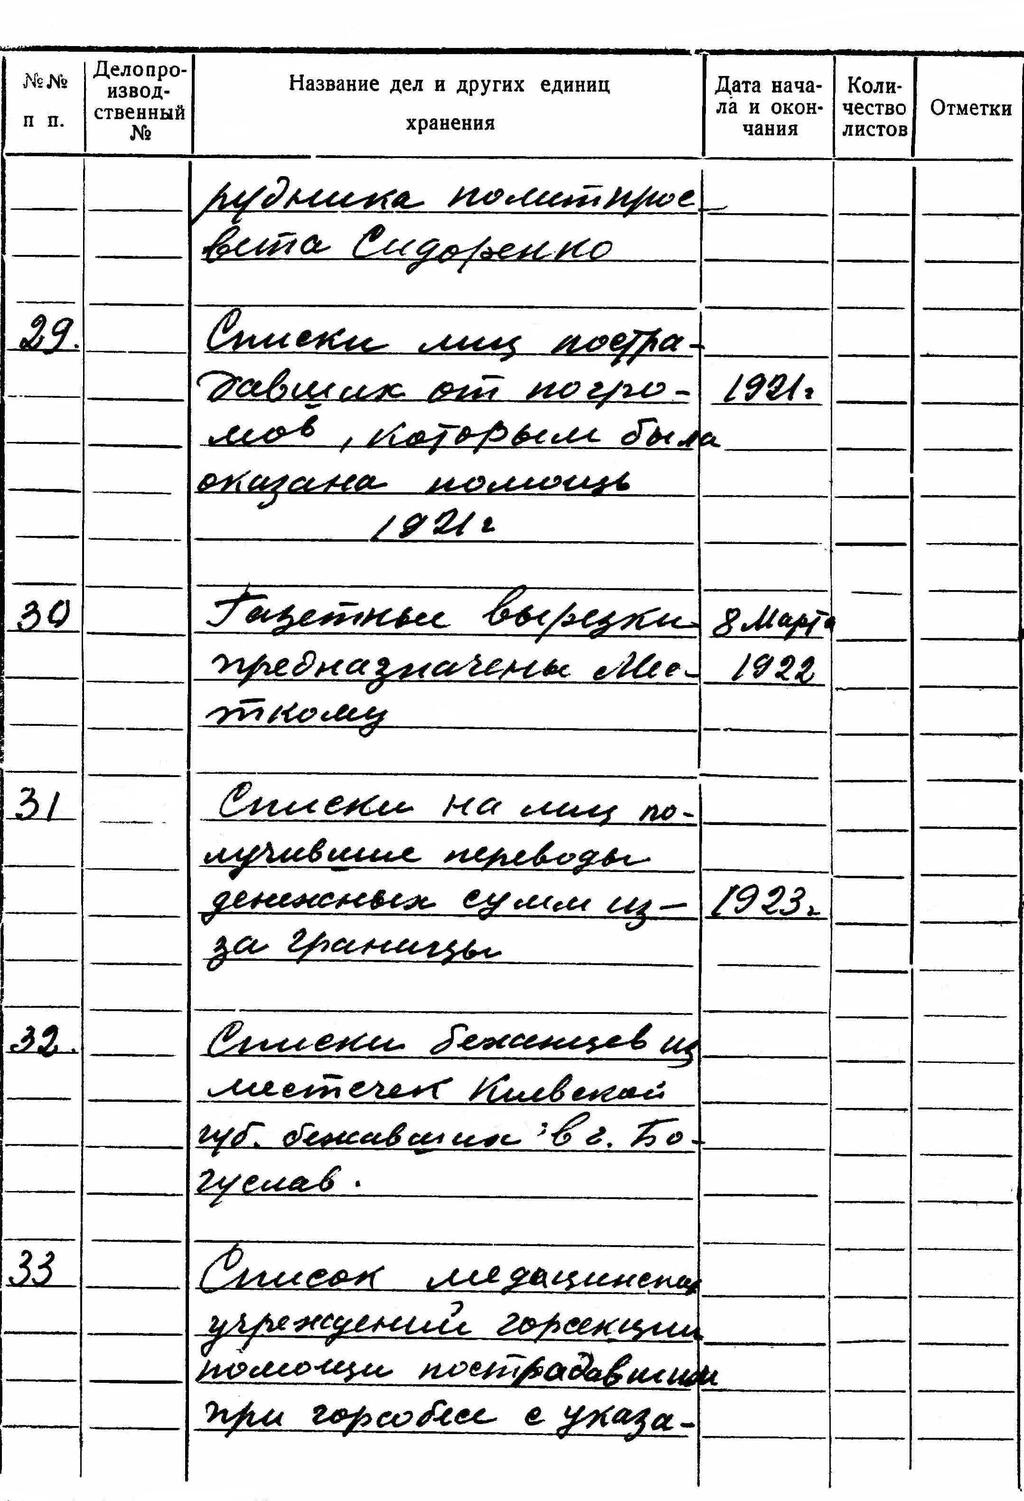 №№ п п.
Делопро-
извод-
ственный
№
Название дел и других единиц
хранения
Дата нача-
ла и окон-
чания
Коли-
чество
листов
Отметки
рудника политпрос-
вета Сидоренко
29. Списки лиц постра-
давших от погро- 1921г
мов, которым была
оказана помощь
1921г
30 Газетные вырезки 8 Марта
предназначены Мес- 1922
ткому
31 Списки на лиц по-
лучившие переводы
денежных сумм из- 1923г
за границы
32. Списки беженцев из
местечек Киевской
губ. бежавших в г. Бо-
гуслав.
33 Список медицинских
учреждений горсекции
помощи пострадавшим
при горсобесе с указа-